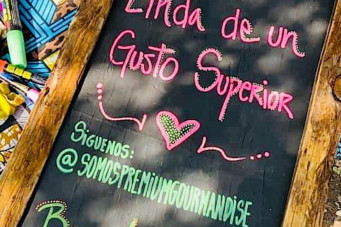 Linda de un
Gusto Superior
Síguenos:
@SOMOSPREMIUMGOURMANDISE
B